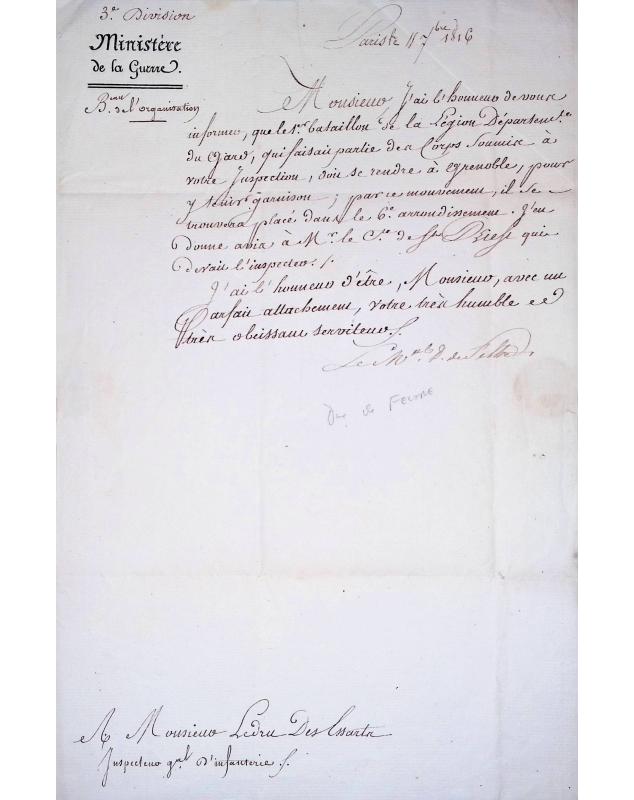 3.e Division
Ministère
de la Guerre.
B.au de l'organisation
Paris le 11 7bre 1816
Monsieur, J'ai l'honneur de vous
informer, que le 1.er bataillon de la Légion Départem.le
du Gard, qui faisait partie des Corps soumis à
votre Inspection, doit se rendre à Grenoble, pour
y tenir garnison; par ce mouvement, il se
trouvera placé dans le 6.e arrondissement. J'en
donne avis à M.r le C.te de St Priest qui
devait l'inspecter./.
J'ai l'honneur d'être, Monsieur, avec un
Parfait attachement, votre très humble et
très obeissant serviteur./.
Le M.al D. de
Duc de Feltre
A Monsieur Ledru Des Essarts
Inspecteur g.al d'infanterie./.